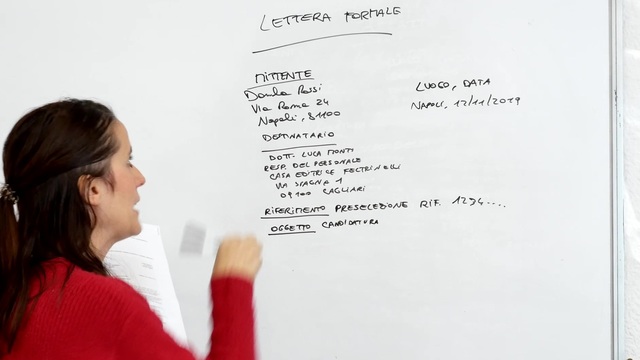 LETTERA FORMALE
MITTENTE
Danila Rossi
Via Roma 24
Napoli, 81100
LUOGO, DATA
NAPOLI, 12/11/2019
DESTINATARIO
DOTT. LUCA MONTI
RESP. DEL PERSONALE
CASA EDITRICE FELTRINELLI
VIA SPAGNA 1
09100 CAGLIARI
RIFERIMENTO PRESELEZIONE RIF. 1294....
OGGETTO CANDIDATURA